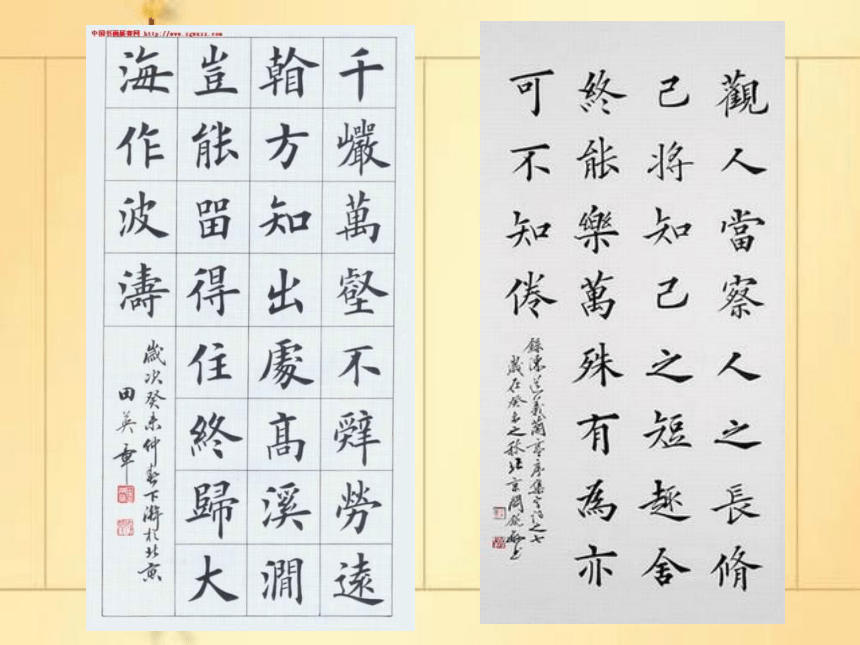 中国书画展赛网 http://www.zgwszz.com
千巗萬壑不辭勞遠
看方知出處高溪澗
豈能留得住終歸大
海作波濤
歲次癸未仲春下澣於北京
田英章
觀人當察人之長脩
己將知己之短趣舍
終能樂萬殊有為亦
可不知倦
錄陳道義蘭亭序集字詩之七
歲在癸未之秋北京閻銳敏書